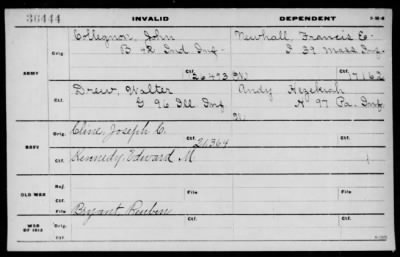 36444
INVALID
DEPENDENT
ARMY
Orig.
Collignon, John
B 42 Ind Inf
Newhall, Francis E.
I 39 Mass Inf.
26473
W
17162
Ctf.
Drew, Walter
G 96 Ill Inf
Andy Hezekiah
H 97 Pa. Inf
W
NAVY
Orig.
Cline, Joseph C.
Ctf.
21364
Ctf.
Kennedy, Edward M
OLD WAR
Rej.
Ctf.
File
File
File
Bryant Reuben
WAR OF 1812
Orig.
Ctf.
Ctf.
Ctf.